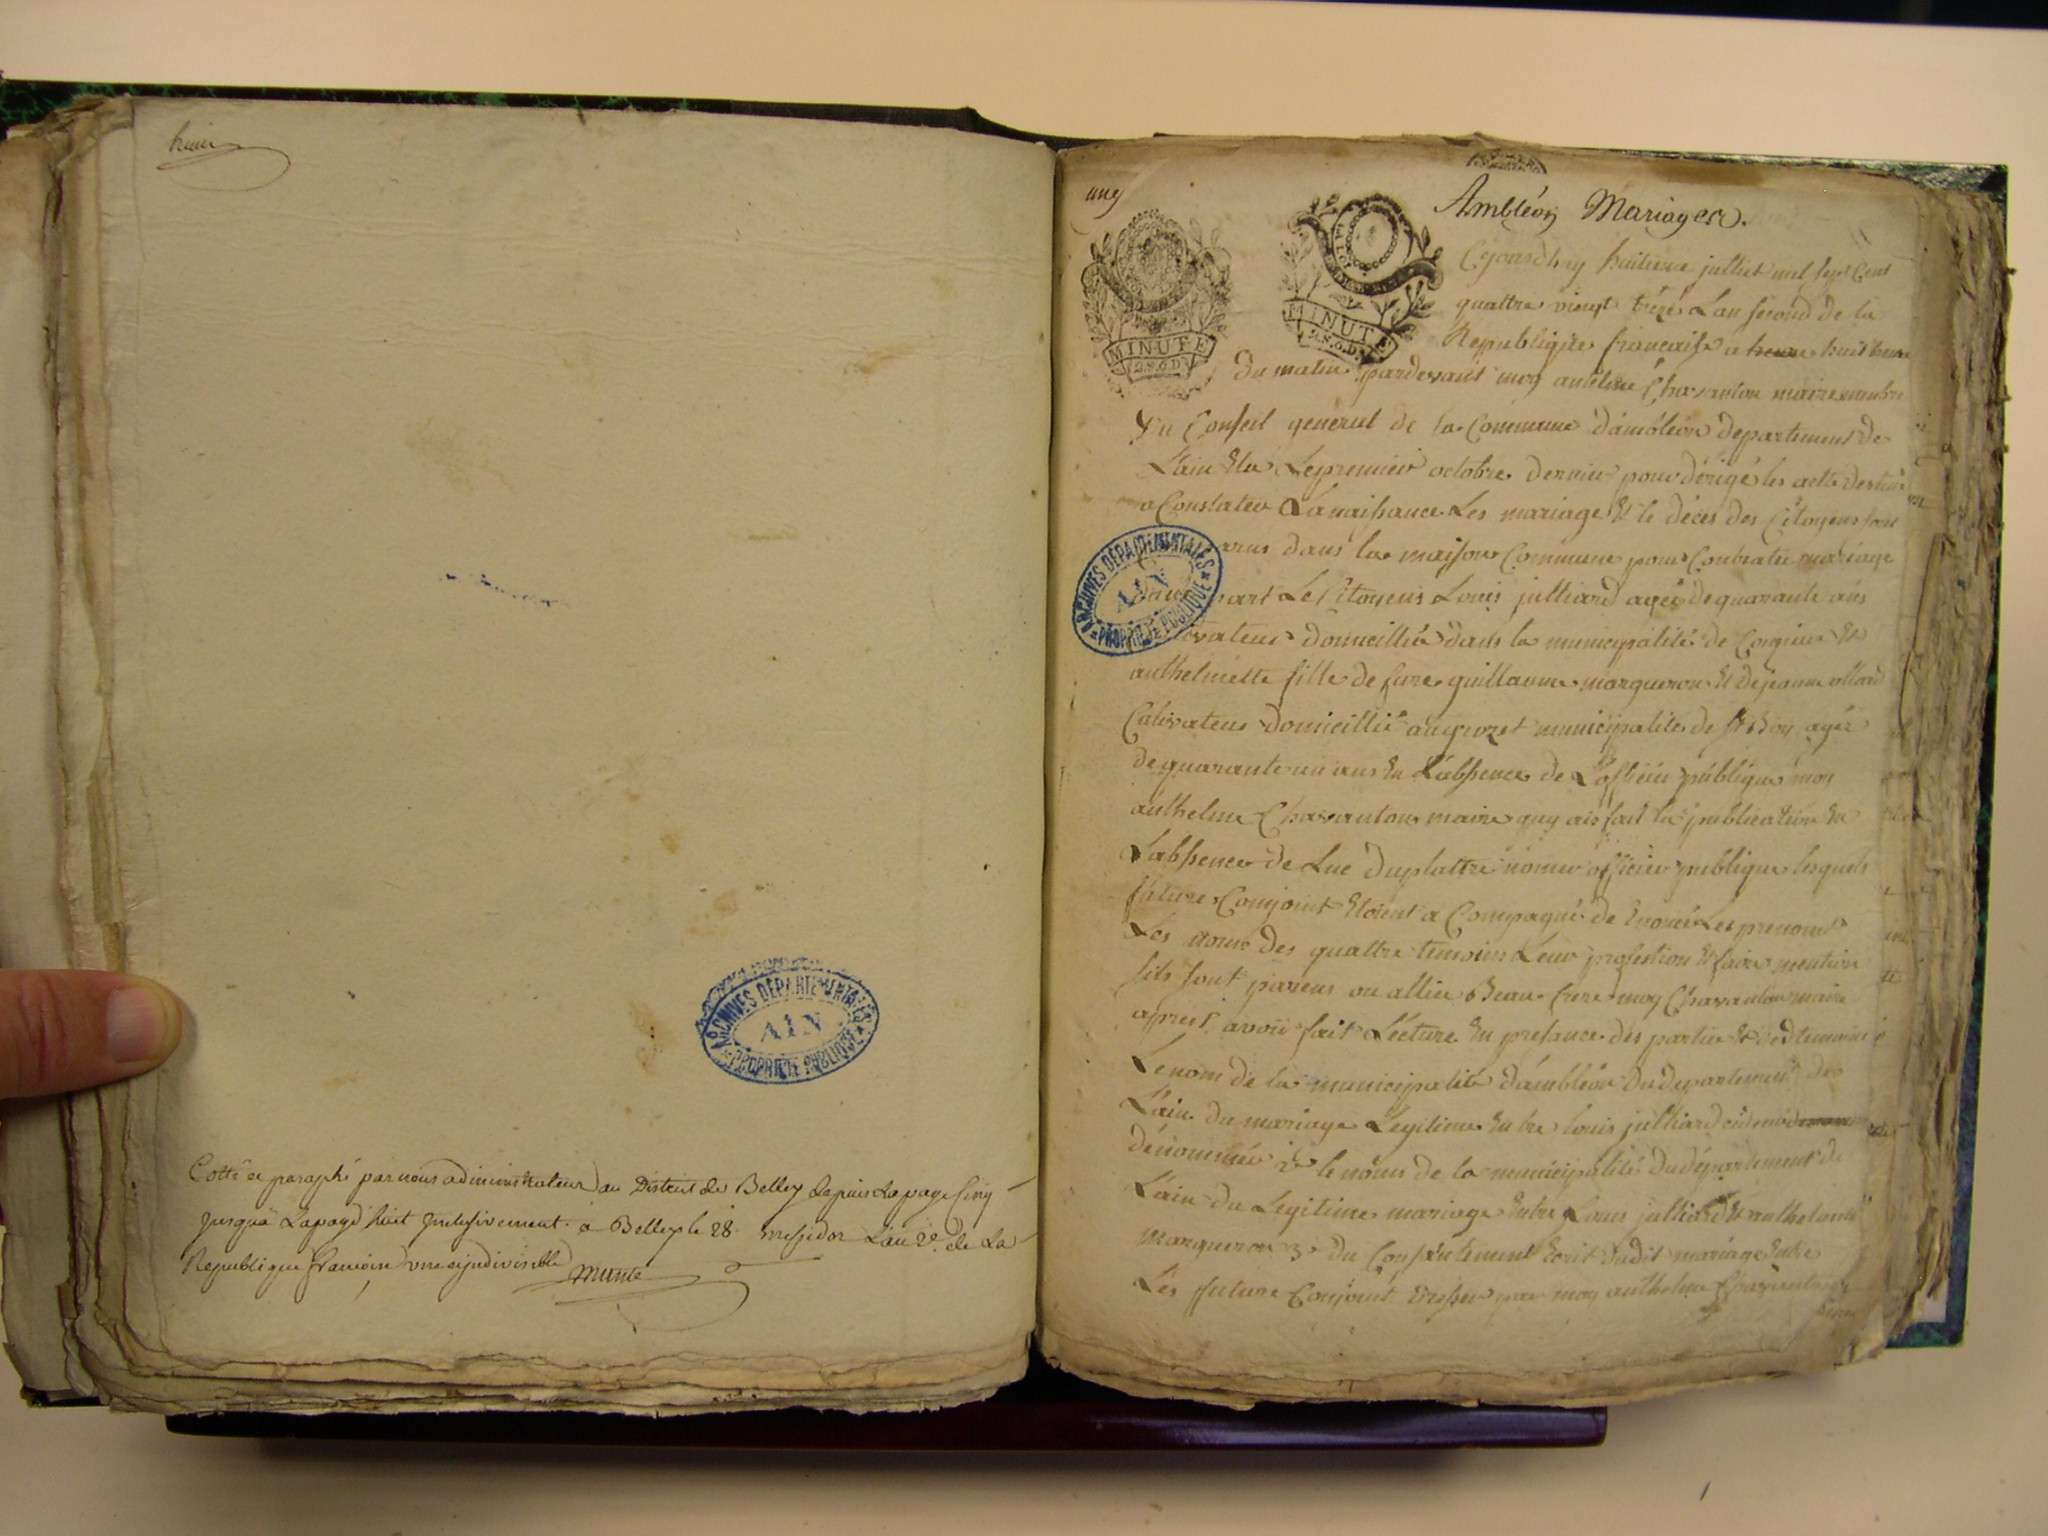 huit
Cotté et paraphé par nous administrateur au District de Belley depuis la page cinq
jusqua La page huit inclusivement a Belley le 28 messidor L'an 2e de La
Republique francaise une et indivisible
ARCHIVES DÉPARTEMENTALES
AIN
PROPRIÉTÉ PUBLIQUE
une
Ambléon Mariages.
MINUTE
2.S.6.D.
MINUTE
2.S.6.D.
Cejourdhuy huitieme julliet mil sept Cent
quattre vingt treze Lan second de la
Republique francaise a huit heure
du matin pardevant moy antelme Chavanton maire membre
du Conseil general de la Commune dambléon departement de
L'ain Elu Le premier octobre dernier pour dirigé les acte destiné
a Constater La naissance Les mariage Et le déces des Citoyens sont
arus dans la maison Commune pour Contraté mariage
part Le Citoyens Louis julliard agéé de quarante ans
vateur domicillié dans la municipalité de Et
ARCHIVES DÉPARTEMENTALES
AIN
PROPRIÉTÉ PUBLIQUE
anthelmette fille de fure guillaume margueron Et de jeanne
Cativateur domicillié municipalité de St Boy agéé
de quarante un ans En Labssence de L'officier publique moy
anthelme Chavanton maire auy ais fait la publication En
Labssence de Luc Duplattre nomé officier publique lesquels
future Conjoint Etoient a Compagné de Les prenoms
Les noms des quattre temoins Leur profestion Et faire mention
sils sont parens ou alliée Beau frere moy Chavanton maire
apreit avoir fait Lecture En presance des partie Et temoins
Le nom de la municipalité d'ambléon du departement de
L'ain du mariage Legitime Entre louis julliard
dénommée 2e le noms de la municipalité du département de
L'ain du Legitime mariage Entre Louis julliard Et anthelmette
Margueron 3e du Consentement Ecrit dudit mariage Entre
Les future Conjoint dresser par moy anthelme Chavanton